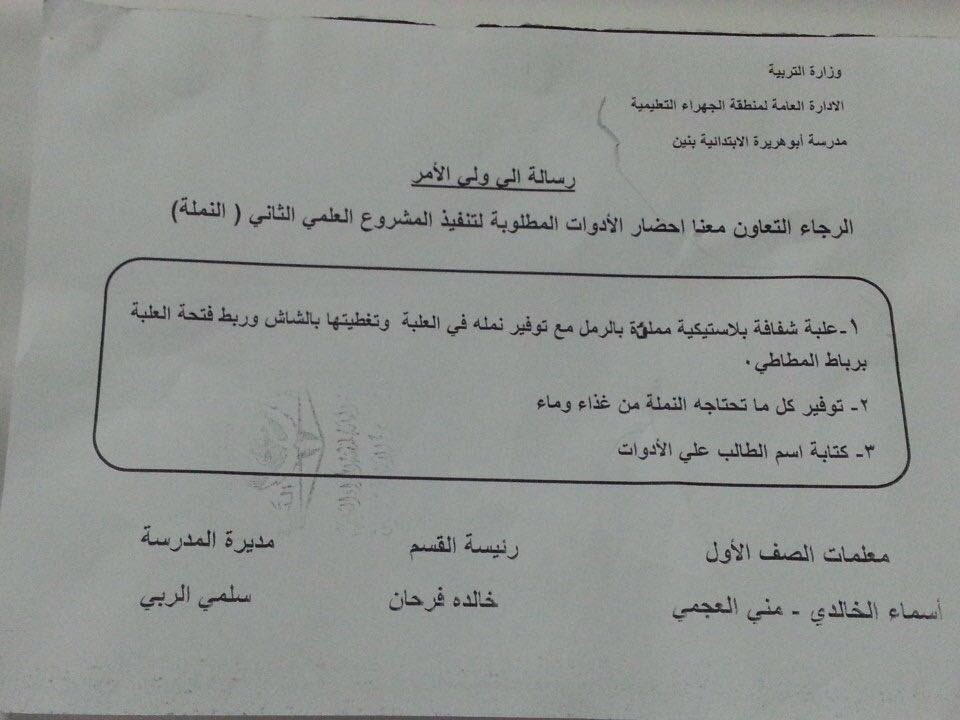 وزارة التربية
الادارة العامة لمنطقة الجهراء التعليمية
مدرسة أبوهريرة الابتدائية بنين
رسالة الي ولي الأمر
الرجاء التعاون معنا احضار الأدوات المطلوبة لتنفيذ المشروع العلمي الثاني ( النملة)
١-علبة شفافة بلاستيكية مملؤة بالرمل مع توفير نمله في العلبة وتغطيتها بالشاش وربط فتحة العلبة
برباط المطاطي .
٢- توفير كل ما تحتاجه النملة من غذاء وماء
٣- كتابة اسم الطالب علي الأدوات
معلمات الصف الأول رئيسة القسم مديرة المدرسة
أسماء الخالدي - مني العجمي خالده فرحان سلمي الربي